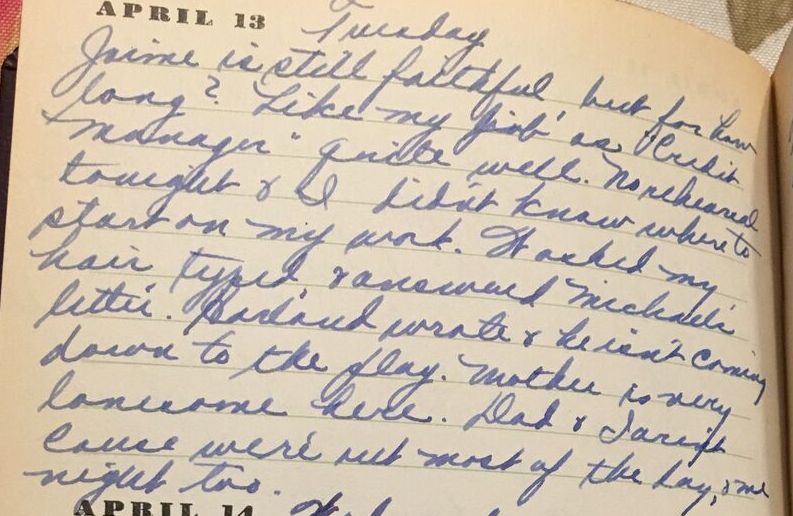 APRIL 13 Tuesday
Jaime is still faithful but for how
long? Like my 'job' as "Credit
manager" quite well. No rehearsal
tonight & I didn't know where to
start on my work. Washed my
hair, typed, & answered Michael's
letter. wrote & he isn't coming
down to the play. Mother is very
lonesome here. Dad &
cause we're out most of the day, & me
night too.
APRIL 14